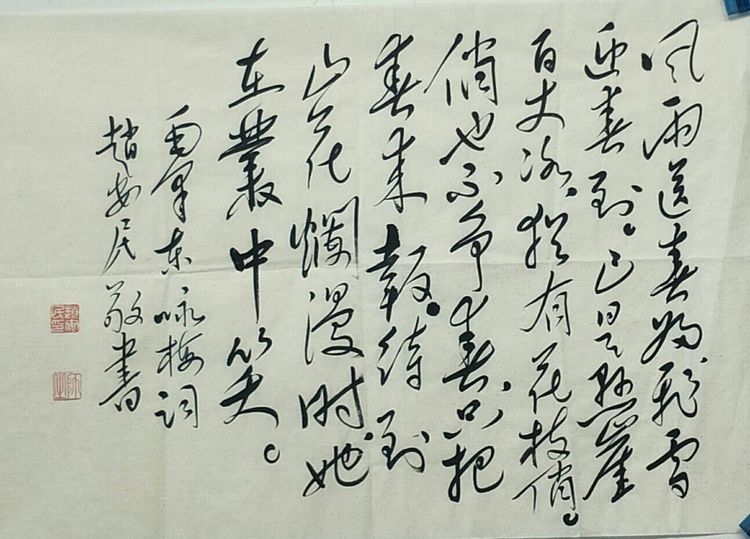 风雨送春归,飞雪
迎春到。已是悬崖
百丈冰,犹有花枝俏。
俏也不争春,只把
春来報。待到
山花爛漫时,她
在叢中笑。
毛泽东咏梅词
趙安民敬書